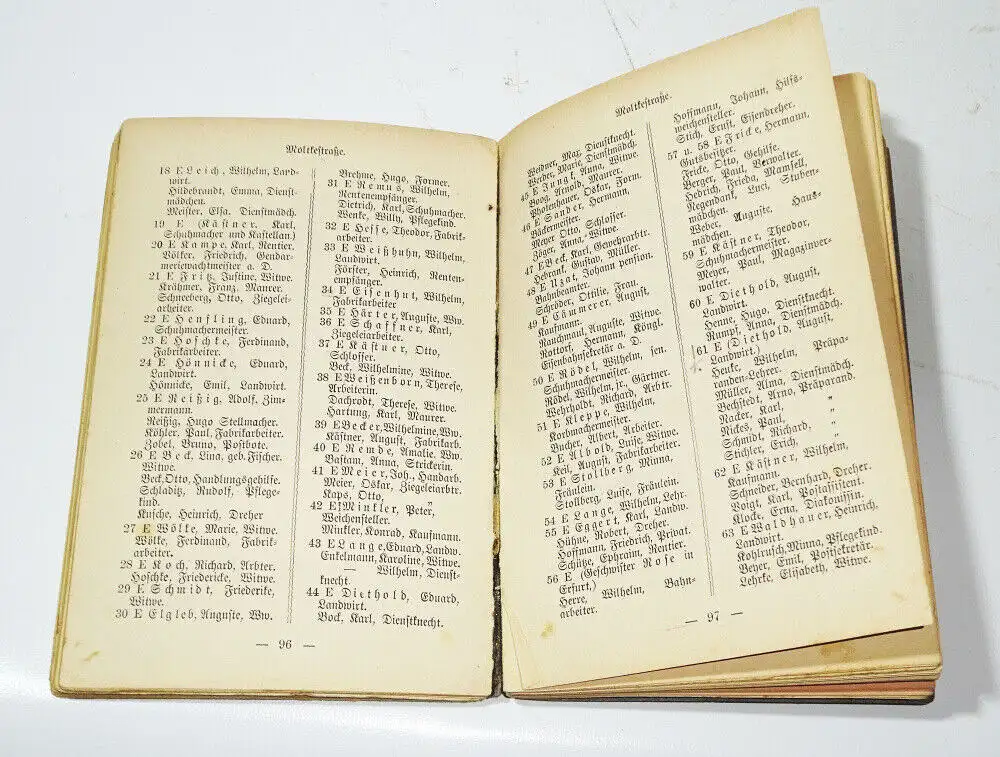 Moltkestraße.
18 E Leich, Wilhelm, Land-
wirt.
Hildebrandt, Emma, Dienst-
mädchen.
Meister, Elsa. Dienstmädch.
19 E (Kästner, Karl,
Schuhmacher und Kastellan.)
20 E Kampe, Karl, Rentier.
Völker, Friedrich, Gendar-
meriewachtmeister a. D.
21 E Fritz, Justine, Witwe.
Krähmer, Franz, Maurer.
Schneeberg, Otto, Ziegelei-
arbeiter.
22 E Henfling, Eduard,
Schuhmachermeister.
23 E Hoschke, Ferdinand,
Fabrikarbeiter.
24 E Hönnicke, Eduard,
Landwirt.
Hönnicke, Emil, Landwirt.
25 E Reißig, Adolf, Zim-
mermann.
Reißig, Hugo Stellmacher.
Köhler, Paul, Fabrikarbeiter.
Zobel, Bruno, Postbote.
26 E Beck, Lina, geb. Fischer.
Witwe.
Beck, Otto, Handlungsgehilfe.
Schladitz, Rudolf, Pflege-
kind.
Kusche, Heinrich, Dreher
27 E Wölke, Marie, Witwe.
Wölke, Ferdinand, Fabrik-
arbeiter.
28 E Koch, Richard, Arbter.
Hoschke, Friedericke, Witwe.
29 E Schmidt, Friederike,
Witwe.
30 E Elgleb, Auguste, Ww.
Brehme, Hugo, Former.
31 E Remus, Wilhelm,
Rentenempfänger.
Dietrich, Karl, Schuhmacher.
Wenke, Willy, Pflegekind.
32 E Hesse, Theodor, Fabrik-
arbeiter.
33 E Weißhuhn, Wilhelm,
Landwirt.
Förster, Heinrich, Renten-
empfänger.
34 E Eisenhut, Wilhelm,
Fabrikarbeiter
35 E Härter, Auguste, Ww.
36 E Schaffner, Karl,
Ziegeleiarbeiter.
37 E Kästner, Otto,
Schlosser.
Beck, Wilhelmine, Witwe.
38 E Weißenborn, Therese,
Arbeiterin.
Dachrodt, Therese, Witwe.
Hartung, Karl, Maurer.
39 E Becker, Wilhelmine, Ww.
Kästner, August, Fabrikarb.
40 E Remde, Amalie, Ww.
Bastam, Anna, Strickerin.
41 E Meier, Joh., Handarb.
Meier, Oskar, Ziegeleiarbtr.
Kaps, Otto, "
42 E Minkler, Peter,
Weichensteller.
Minkler, Konrad, Kaufmann.
43 E Lange, Eduard, Landw.
Enkelmann, Karoline, Witwe.
— Wilhelm, Dienst-
knecht.
44 E Diethold, Eduard,
Landwirt.
Bock, Karl, Dienstknecht.
— 96 —
Moltkestraße.
Weidner, Max, Dienstknecht.
Weber, Marie, Dienstmädch.
45 E Jungk, Anna, Witwe.
Boog, Arnold, Maurer.
Photenhauer, Oskar, Form.
46 E Sander, Hermann,
Bäckermeister.
Meyer, Otto, Schlosser.
Zöger, Anna, Witwe.
47 E Beck, Karl, Gewehrarbtr.
Hebrank, Gustav, Müller.
48 E Uzat, Johann pension.
Bahnbeamter.
Schröder, Ottilie, Frau.
49 E Cäumerer, August,
Kaufmann.
Rauchmaul, Auguste, Witwe.
Rottorf, Hermann, Königl.
Eisenbahnsekretär a. D.
50 E Rödel, Wilhelm, sen.
Schuhmachermeister.
Rödel, Wilhelm, jr., Gärtner.
Wehrholdt, Richard, Arbtr.
51 E Kleppe, Wilhelm,
Korbmachermeister.
Bucher, Albert, Arbeiter.
52 E Albold, Luise, Witwe.
Keil, August, Fabrikarbeiter.
53 E Stollberg, Minna,
Fräulein.
Stollberg, Luise, Fräulein.
54 E Lange, Wilhelm, Lehr.
55 E Eggert, Karl, Landw.
Hühne, Robert, Dreher.
Hoffmann, Friedrich, Privat.
Schütze, Ephraim, Rentier.
56 E (Geschwister Rose in
Erfurt,)
Herre, Wilhelm, Bahn-
arbeiter.
Hoffmann, Johann, Hilfs-
weichensteller.
Stich, Ernst, Eisendreher.
57 u. 58 E Fricke, Hermann,
Gutsbesitzer.
Fricke, Otto, Gehilfe.
Berger, Paul, Verwalter.
Hedrich, Frieda, Mamsell,
Regendank, Luci, Stuben-
mädchen.
Weber, Auguste, Haus-
mädchen.
59 E Kästner, Theodor,
Schuhmachermeister.
Meyer, Paul, Magazinver-
walter.
60 E Diethold, August,
Landwirt.
Henne, Hugo, Dienstknecht.
Rumpf, Anna, Dienstmädch.
61 E (Diethold, August,
Landwirt.)
Henke, Wilhelm, Präpa-
randen-Lehrer.
Müller, Alma, Dienstmädch.
Bechstedt, Arno, Präparand.
Nacker, Karl, "
Rickes, Paul, "
Schmidt, Richard, "
Stichler, Erich, "
62 E Kästner, Wilhelm,
Kaufmann.
Schneider, Bernhard, Dreher.
Voigt, Karl, Postassistent.
Klock, Erna, Diakonissin.
63 E Waldhauer, Heinrich,
Landwirt.
Kohlrusch, Minna, Pflegekind.
Beyer, Emil, Postsekretär.
Lehrke, Elisabeth, Witwe.
— 97 —